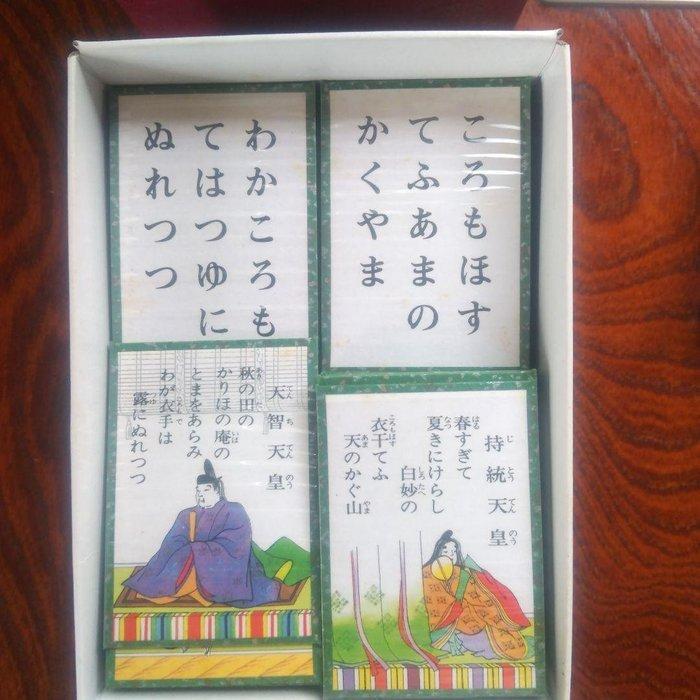 わかころも
てはつゆに
ぬれつつ
ころもほす
てふあまの
かくやま
天智天皇
秋の田の
かりほの庵の
とまをあらみ
わが衣手は
露にぬれつつ
持統天皇
春すぎて
夏きにけらし
白妙の
衣干てふ
天のかぐ山